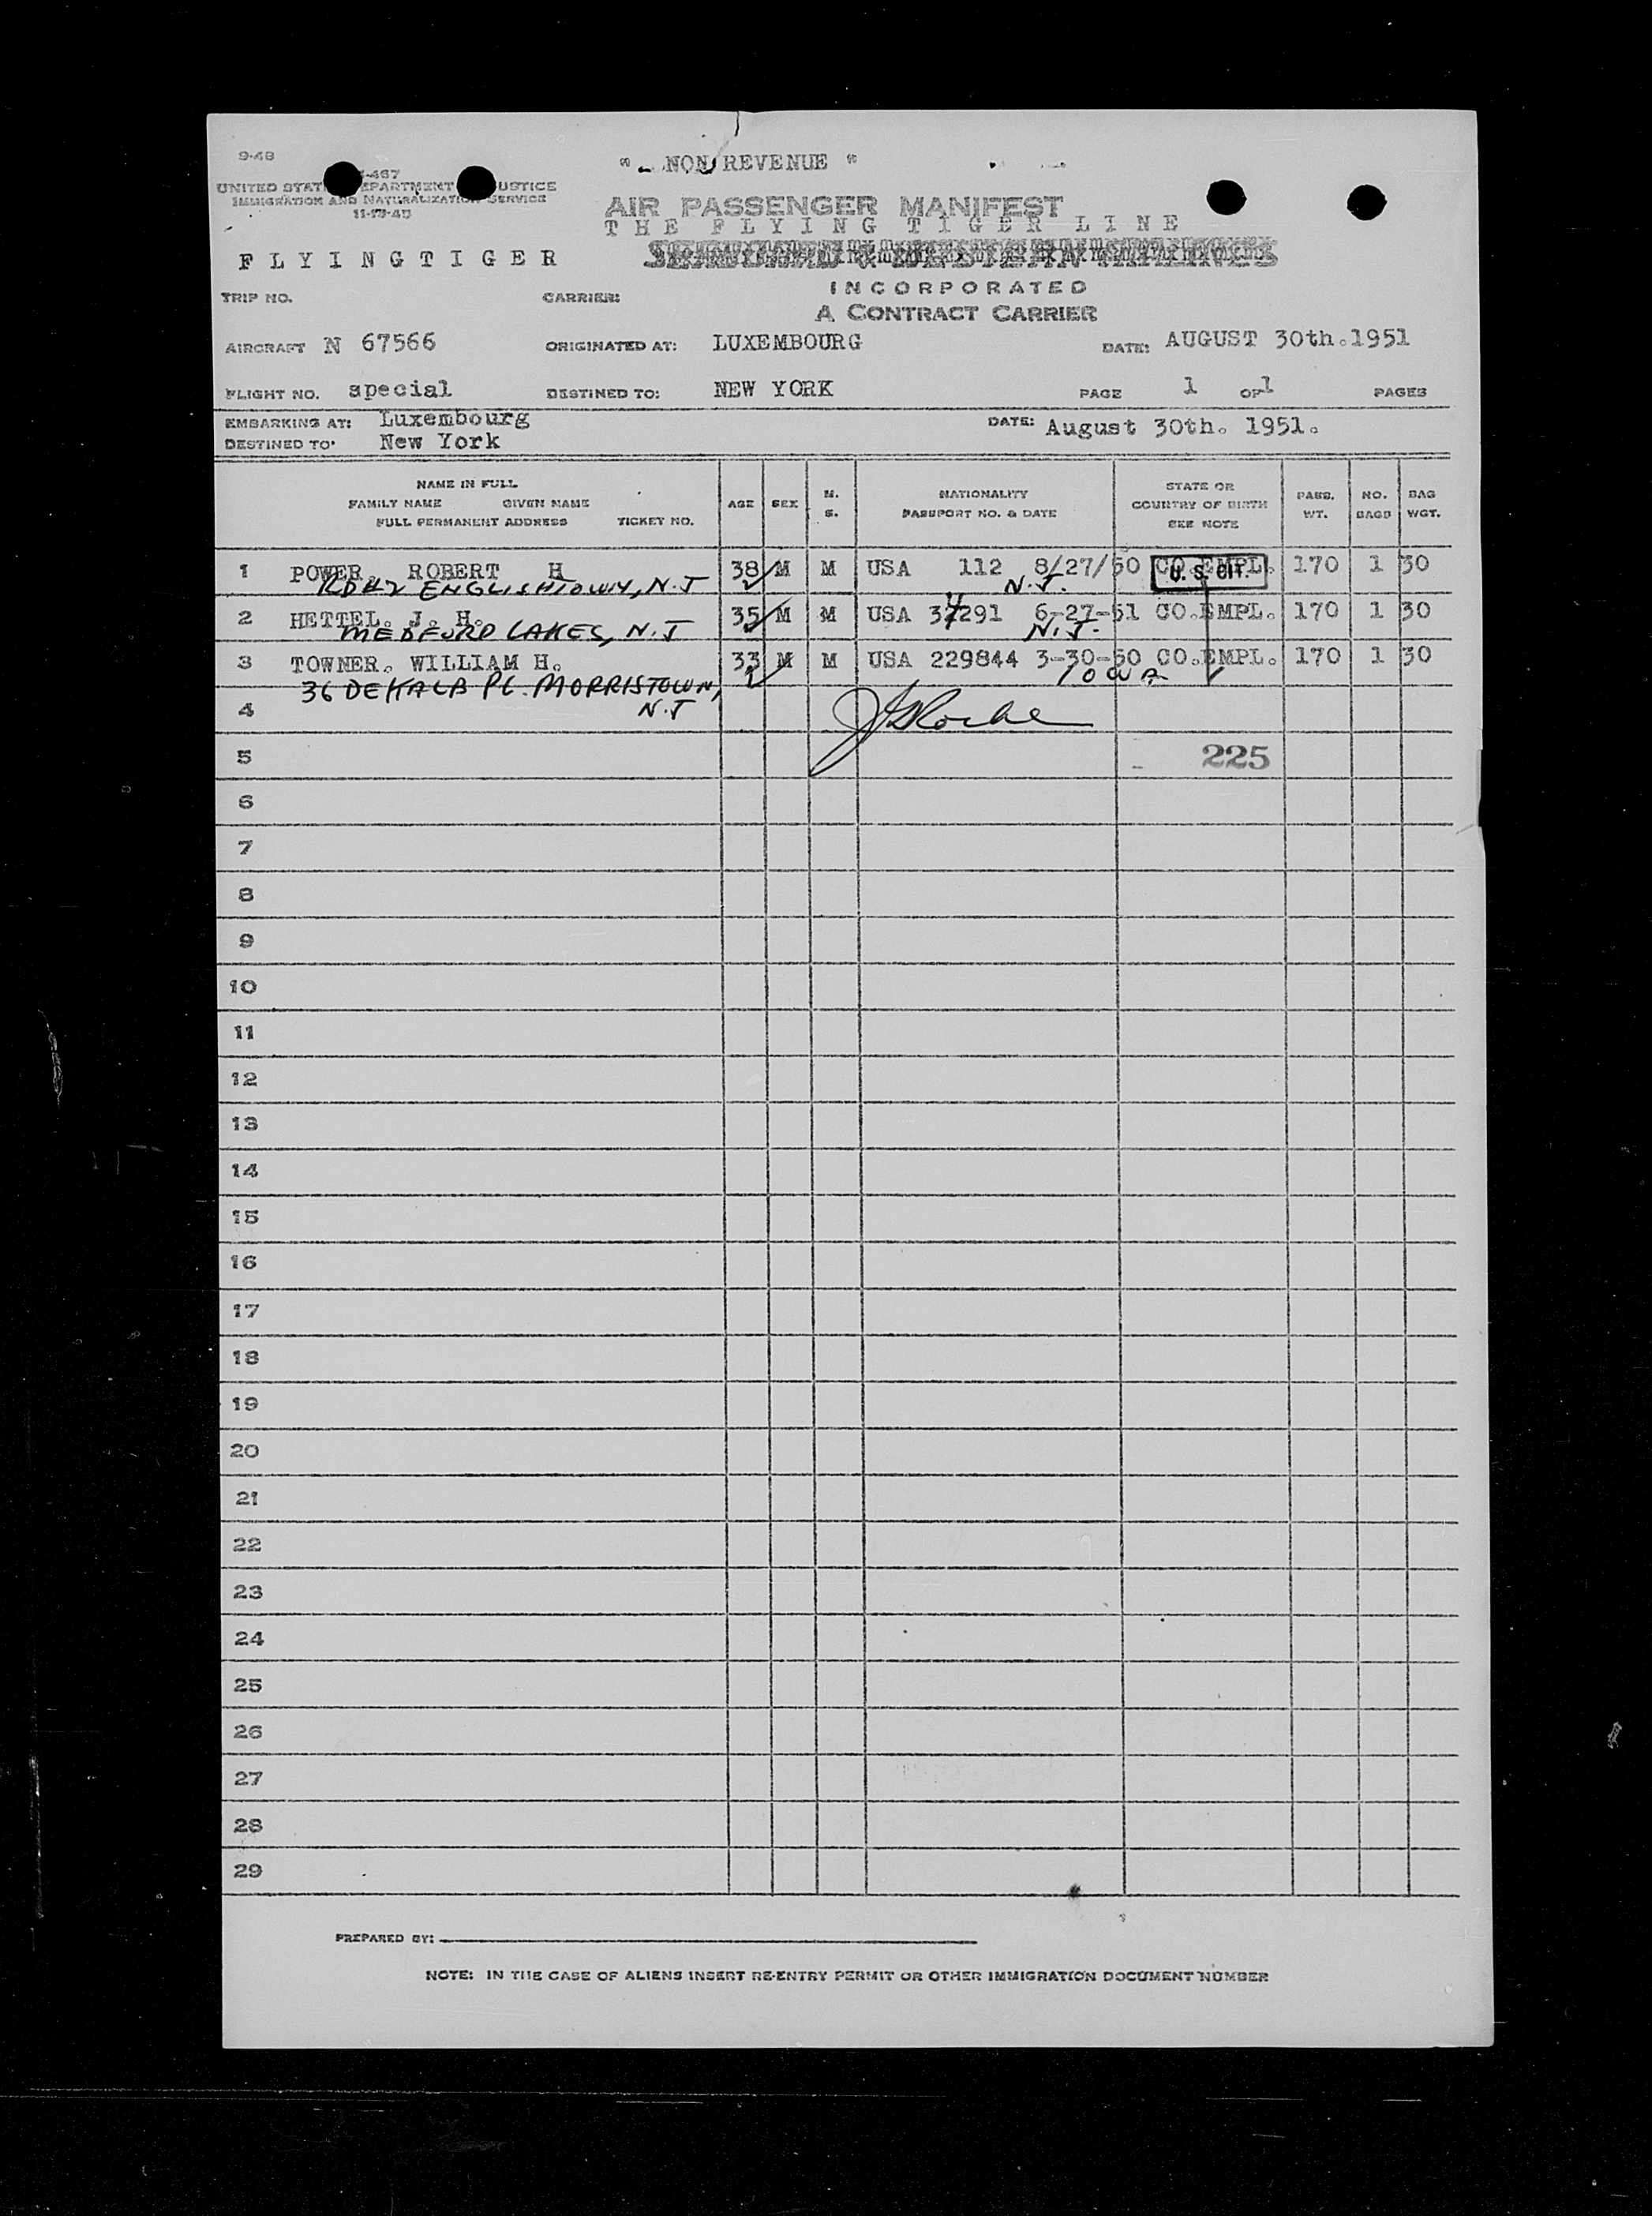 9-48
-467
UNITED STAT EPARTMENT USTICE
IMMIGRATION AND NATURALIZATION SERVICE
" NON REVENUE "
AIR PASSENGER MANIFEST
THE FLYING TIGER LINE
FLYINGTIGER
INCORPORATED
TRIP NO. CARRIER:
A CONTRACT CARRIER
AIRCRAFT N 67566 ORIGINATED AT: LUXEMBOURG DATE: AUGUST 30th.1951
FLIGHT NO. special DESTINED TO: NEW YORK PAGE 1 OF 1 PAGES
EMBARKING AT: Luxembourg DATE: August 30th. 1951.
DESTINED TO: New York
NAME IN FULL
FAMILY NAME GIVEN NAME
FULL PERMANENT ADDRESS TICKET NO.
AGE SEX M. S.
NATIONALITY
PASSPORT NO. & DATE
STATE OR
COUNTRY OF BIRTH
SEE NOTE
PASS. WT. NO. BAGS BAG WGT.
1 POWER ROBERT H 38 M M USA 112 8/27/50 CO.EMPL. 170 1 30
U. S. CIT.
RD#2 ENGLISHTOWN, N.J N.J.
2 HETTEL. J. H. 35 M M USA 291 6-27-51 CO.EMPL. 170 1 30
MEDFORD LAKES, N.J N.J.
3 TOWNER. WILLIAM H. 33 M M USA 229844 3-30-50 CO.EMPL. 170 1 30
36 DEKALB PL. MORRISTOWN, IOWA
N.J
4
JRoche
5 225
6
7
8
9
10
11
12
13
14
15
16
17
18
19
20
21
22
23
24
25
26
27
28
29
PREPARED BY:
NOTE: IN THE CASE OF ALIENS INSERT RE-ENTRY PERMIT OR OTHER IMMIGRATION DOCUMENT NUMBER